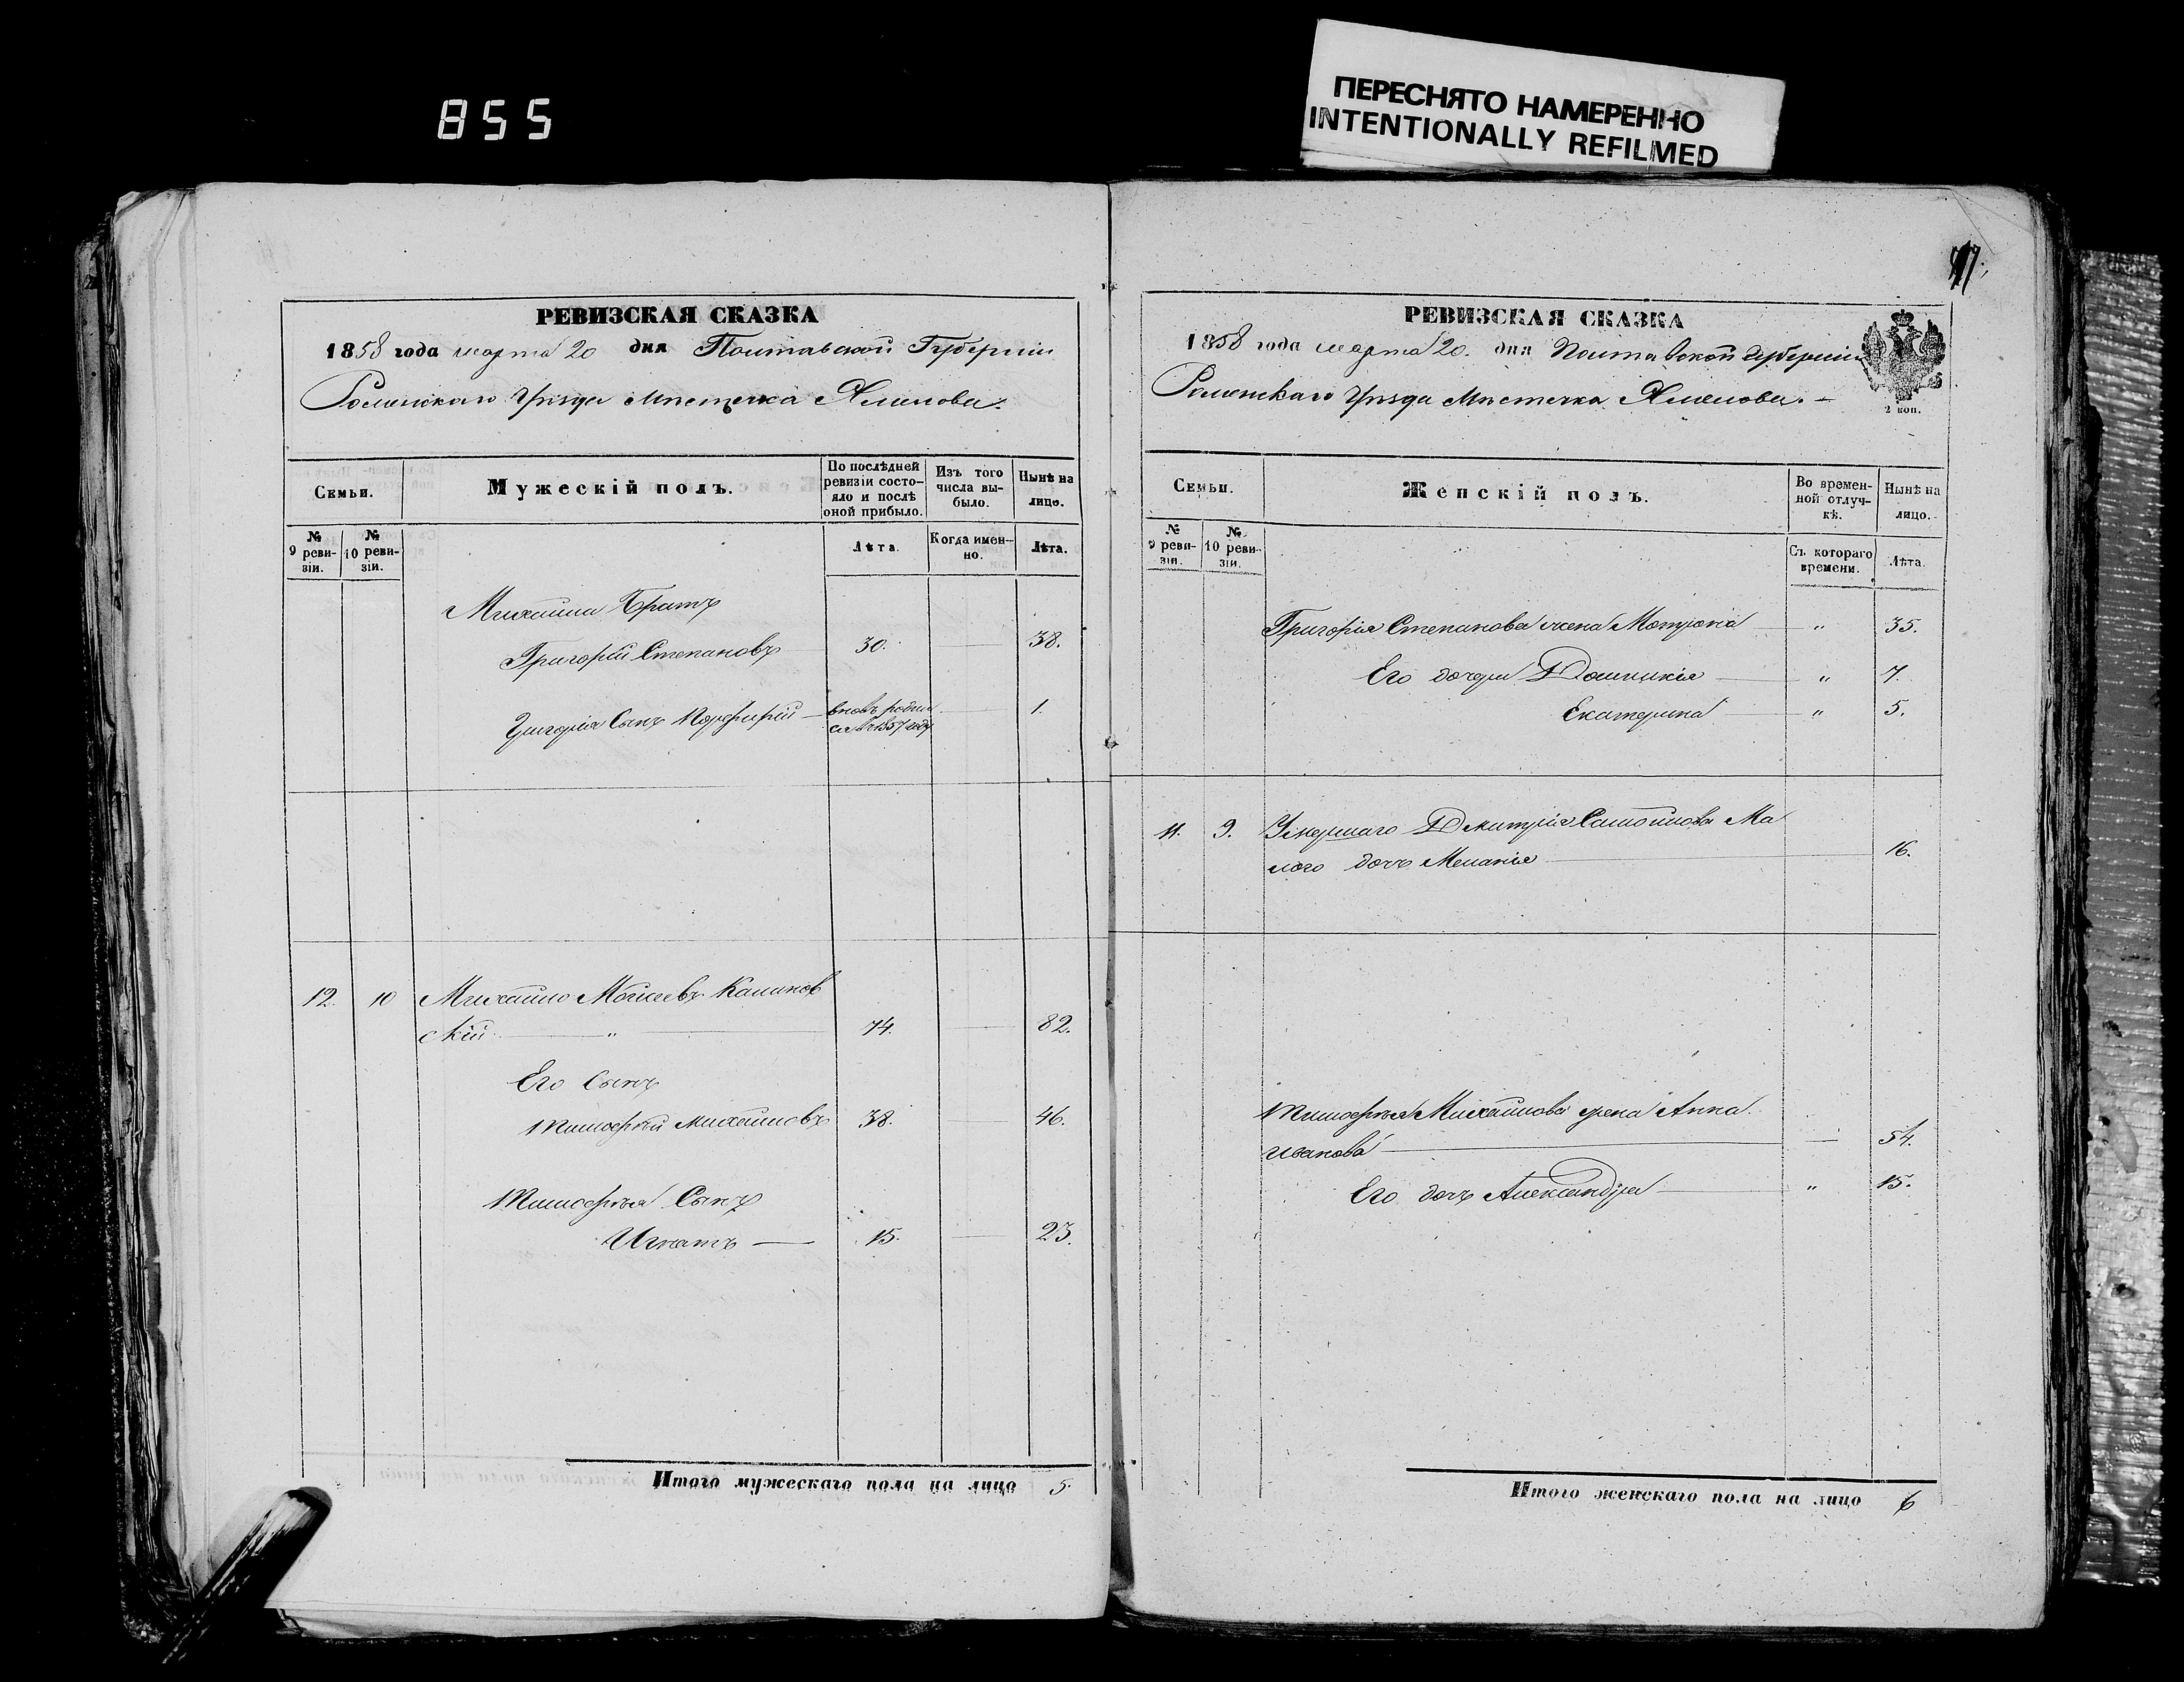 855
ПЕРЕСНЯТО НАМЕРЕННО
INTENTIONALLY REFILMED
РЕВИЗСКАЯ СКАЗКА
1858 года марта 20 дня Полтавской Губернiи
Роменскаго Уѣзда Мѣстечка Смелова.
Семьи.
Мужескiй полъ.
По послѣдней ревизiи состояло и послѣ оной прибыло.
Изъ того числа выбыло.
Нынѣ на лицо.
№ 9 ревизiи.
№ 10 ревизiи.
Лѣта.
Когда именно.
Лѣта.
Михаила Братъ
Григорiй Степановъ 30. 38.
Григорiя Сынъ Порфирiй вновь родился въ 1857 году 1.
12. 10 Михайло Моисеевъ Калинов
скiй " 74. 82.
Его Сынъ
Тимофей Михайловъ 38. 46.
Тимофея Сынъ
Игнатъ 15. 23.
Итого мужескаго пола на лицо 5.
РЕВИЗСКАЯ СКАЗКА
1858 года марта 20. дня Полтавской Губернiи
2 коп.
Роменскаго Уѣзда Мѣстечка Смелова.
Семьи.
Женскiй полъ.
Во временной отлучкѣ.
Нынѣ на лицо.
№ 9 ревизiи.
№ 10 ревизiи.
Съ котораго времени.
Лѣта.
Григорiя Степанова жена Мотрона " 35.
Его дочери Домникiя " 7.
Екатерина " 5.
11. 9. Умершаго Дмитрiя Самойлова Ма
лого дочь Меланiя 16.
Тимофея Михайлова жена Анна
Иванова 54.
Его дочь Александра " 15.
Итого женскаго пола на лицо 6